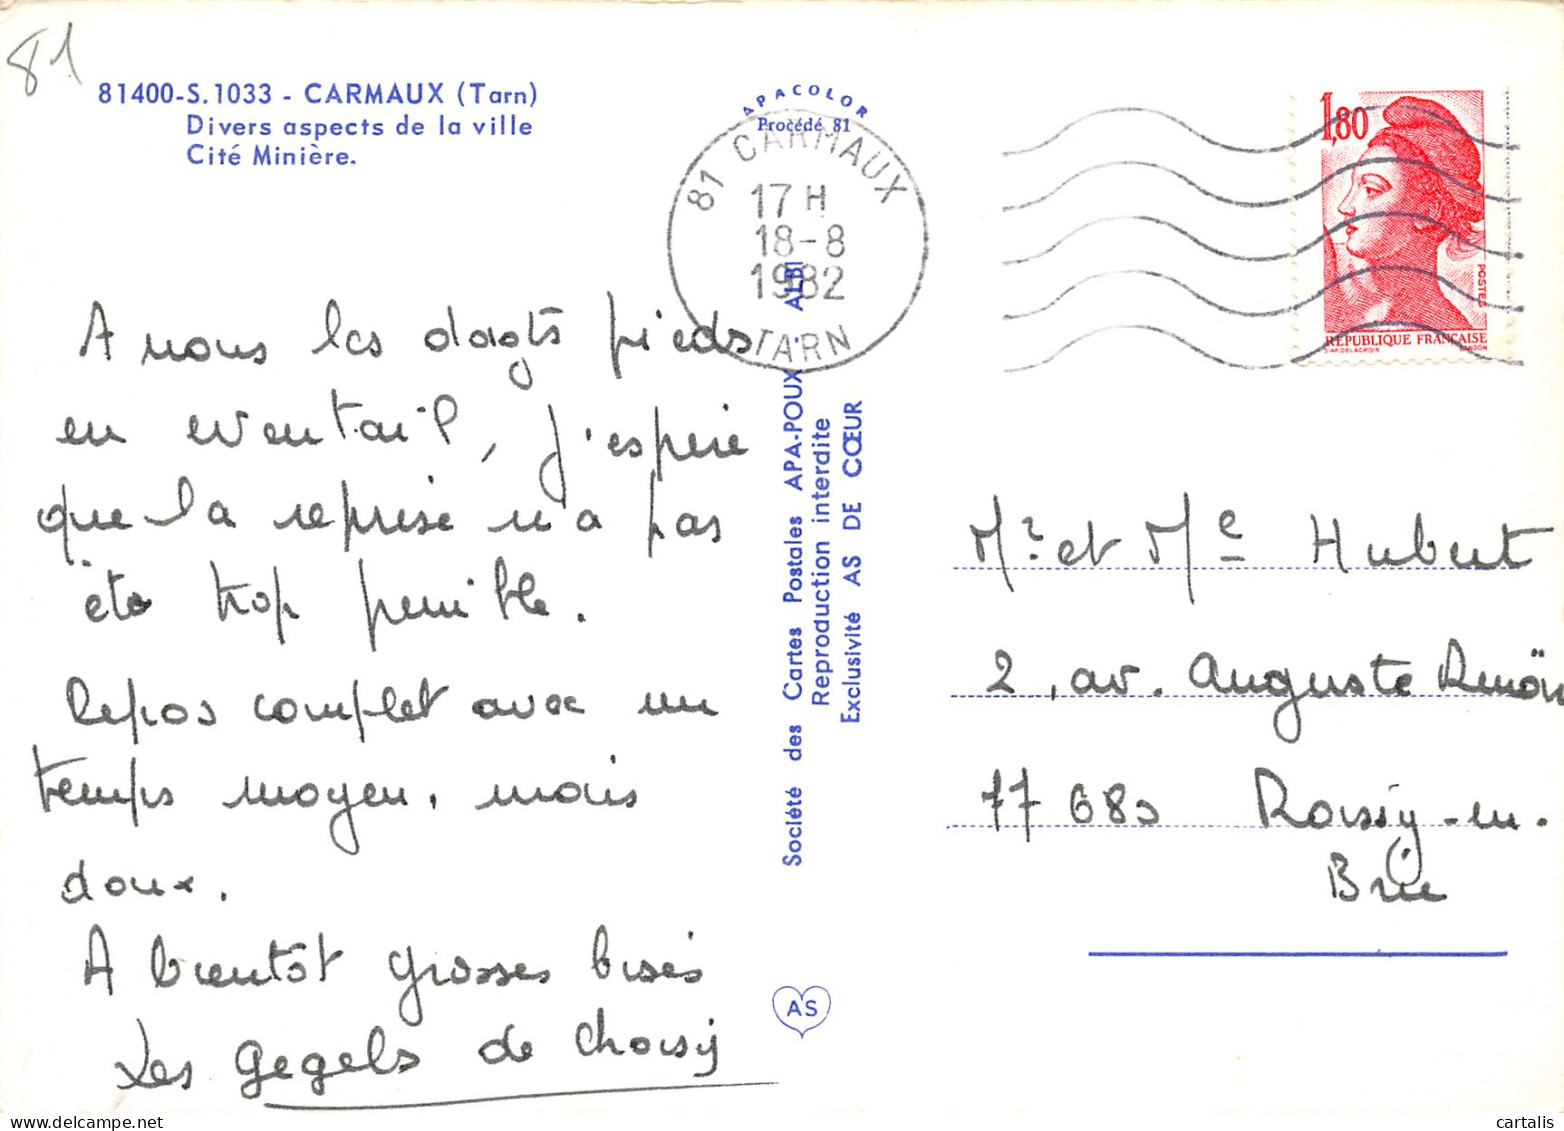 81
81400-S.1033 - CARMAUX (Tarn)
Divers aspects de la ville
Cité Minière.
APACOLOR
Procédé 81
81 CARMAUX
17 H
18-8
1982
TARN
1,80
POSTES
RÉPUBLIQUE FRANÇAISE
D'AP. DELACROIX GANDON
A nous les doigts pieds
en eventail, j'espère
que la reprise n'a pas
été trop penible.
Repos complet avec un
temps moyen, mais
doux.
A bientôt grosses bises
Les Gegels de Choisy
Société des Cartes Postales APA-POUX - ALBI
Reproduction interdite
Exclusivité AS DE CŒUR
AS
Mr. et Me Hubert
2, av. Auguste Renoir
77680 Roissy-en-
Brie
cartalis